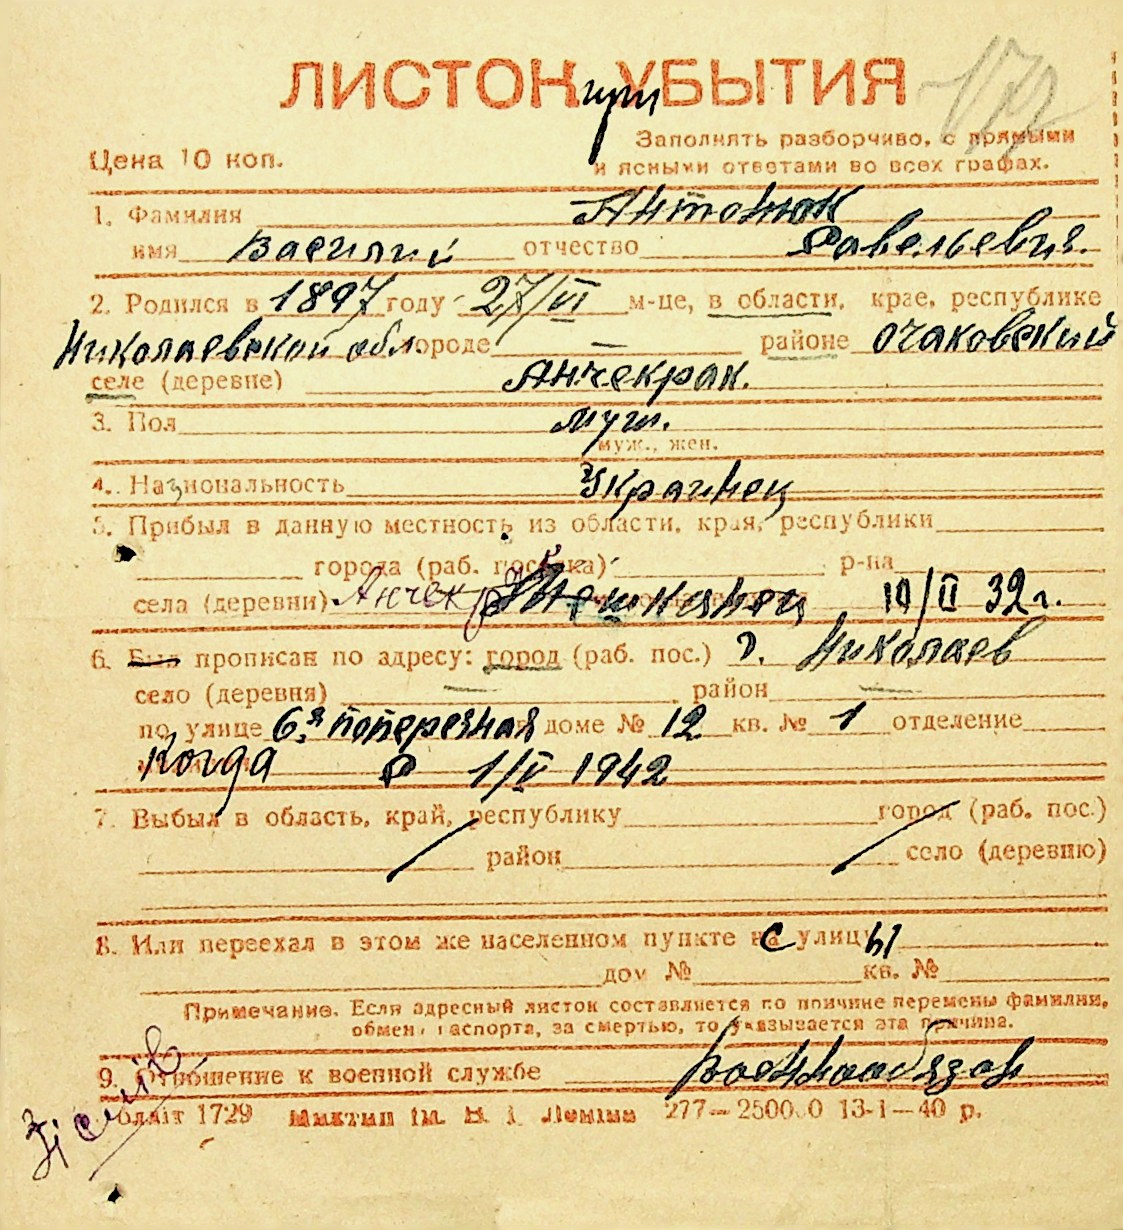 ЛИСТОК при УБЫТИЯ
Цена 10 коп.
Заполнять разборчиво, с прямыми
и ясными ответами во всех графах.
1. Фамилия Антонюк
имя Василий отчество Савельевич.
2. Родился в 1897 году 27/VI м-це, в области, крае, республике
Николаевской обл городе — районе Очаковский
селе (деревне) Анчекрак.
3. Пол муж.
муж., жен.
4. Национальность Украинец
5. Прибыл в данную местность из области, края, республики
города (раб. поселка) р-на
села (деревни) Анчекрак 10/II 32 г.
6. Был прописан по адресу: город (раб. пос.) г. Николаев
село (деревня) — район —
по улице 6.я поперечная доме № 12 кв. № 1 отделение
Когда С 1/V 1942
7. Выбыл в область, край, республику город (раб. пос.)
район село (деревню)
8. Или переехал в этом же населенном пункте с улицы
дом № кв. №
Примечание. Если адресный листок составляется по причине перемены фамилии,
обмена паспорта, за смертью, то указывается эта причина.
9. Отношение к военной службе Военнообязан
Обллiт 1729 iм. В. I. Ленiна 277—250000 13-1—40 р.